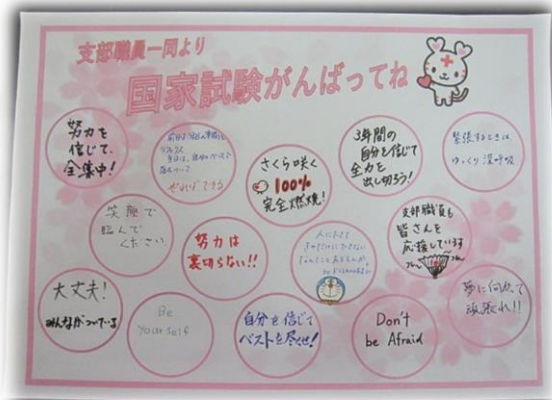 支部職員一同より
国家試験がんばってね
努力を
信じて、
全集中!
リラックス
さくら咲く
100%
完全燃焼!
3年間の
自分を信じて
全力を
出し切ろう!
緊張するときは
ゆっくり深呼吸
笑顔で
臨んで
ください
努力は
裏切らない!!
支部職員も
皆さんを
応援しています
大丈夫!
みんながついている
Be
Yourself
自分を信じて
ベストを尽くせ!
Don't
be Afraid
夢に向かって
頑張れ!!